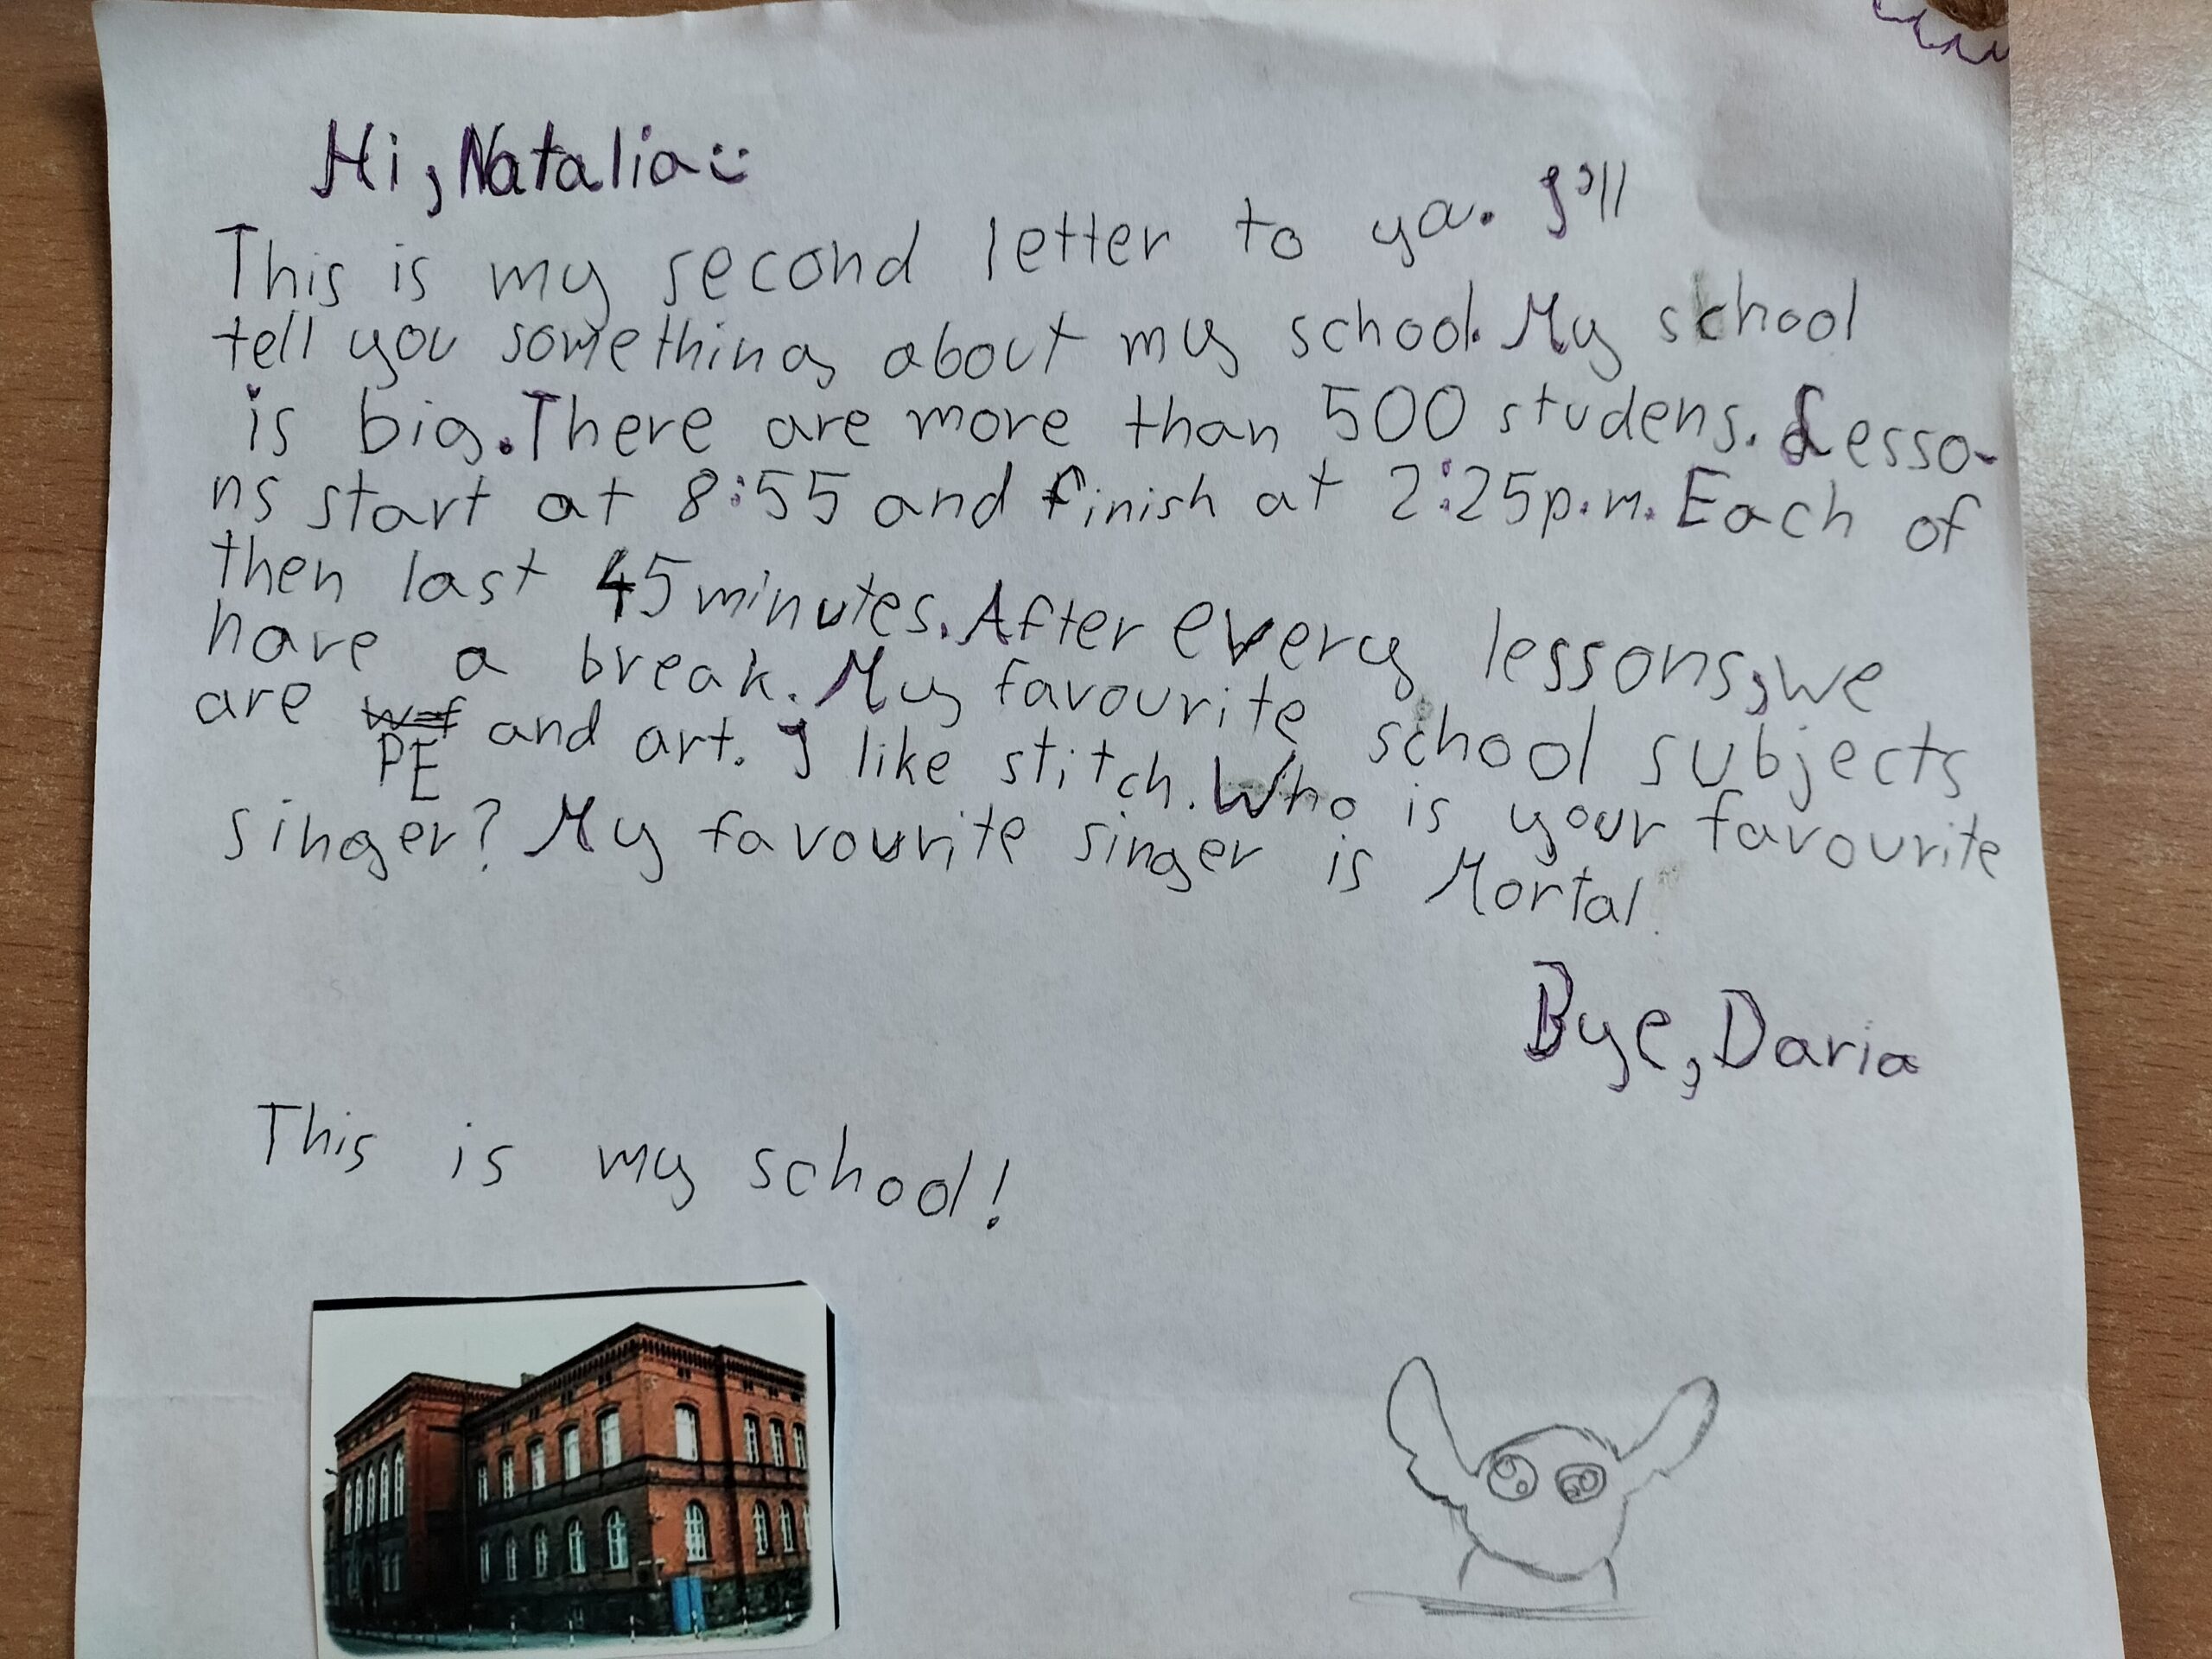 Hi, Natalia :)
This is my second letter to ya. I'll
tell you something about my school. My school
is big. There are more than 500 studens. Lesso-
ns start at 8:55 and finish at 2:25 p.m. Each of
then last 45 minutes. After every lessons, we
have a break. My favourite school subjects
are PE and art. I like stitch. Who is your favourite
singer? My favourite singer is Mortal
Bye, Daria
This is my school!